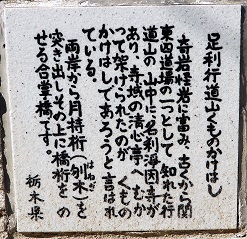 足利行道山くものかけはし
奇岩怪岩に富み、古くから関
東四道場の一つとして知れた行
道山の山中に名刹浄因寺が
あり、寺域の清心亭へむか
って架けられたのが くもの
かけはしであろうと言はれ
ている。
両岸から月持桁(刎木)を
はねぎ
突き出しその上に橋桁を の
せる合霊橋です。
栃木県